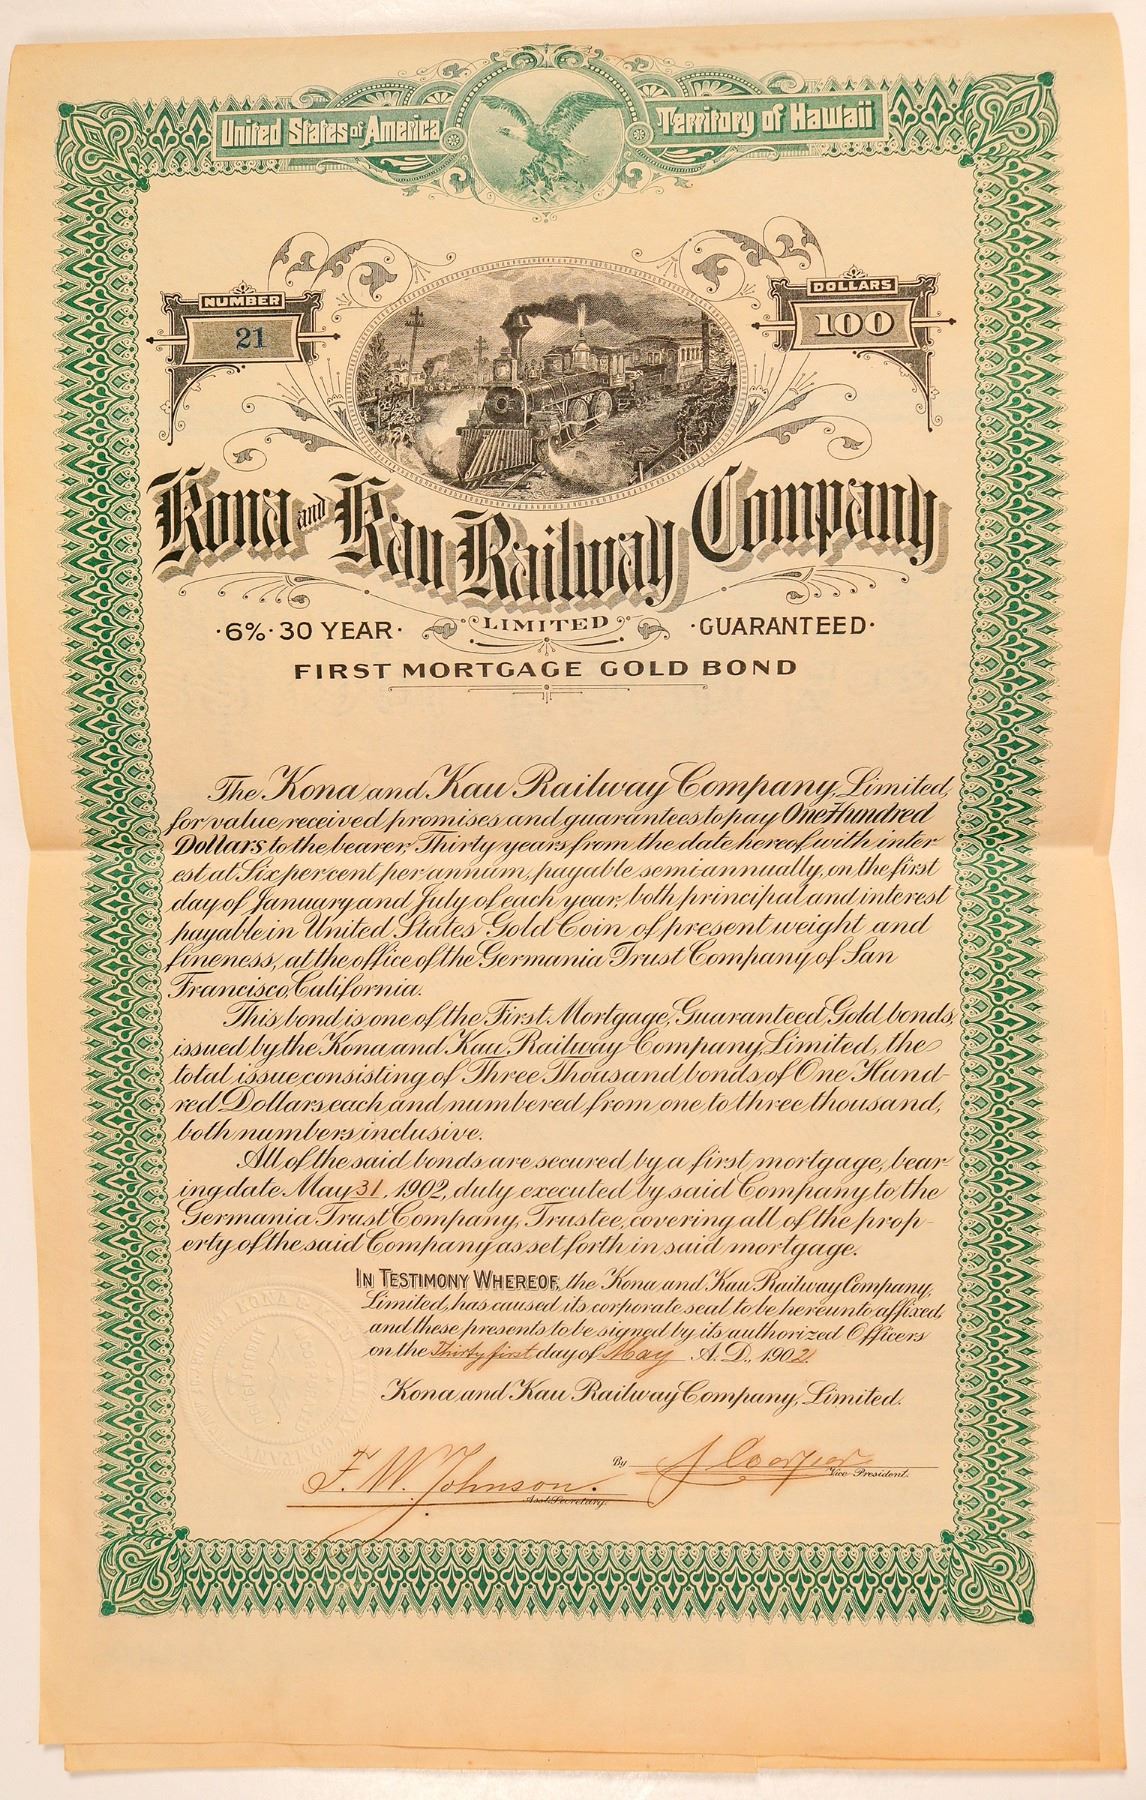 United States of America
Territory of Hawaii
NUMBER
21
DOLLARS
100
Kona and Kau Railway Company
LIMITED
·6%·30 YEAR·
·GUARANTEED·
FIRST MORTGAGE GOLD BOND
The Kona and Kau Railway Company, Limited,
for value received promises and guarantees to pay One Hundred
Dollars to the bearer, Thirty years from the date hereof with inter
est at Six per cent per annum, payable semi annually, on the first
day of January and July of each year, both principal and interest
payable in United States Gold Coin of present weight and
fineness, at the office of the Germania Trust Company of San
Francisco, California.
This bond is one of the First Mortgage, Guaranteed, Gold bonds,
issued by the Kona and Kau Railway Company, Limited, the
total issue consisting of Three Thousand bonds of One Hund-
red Dollars each and numbered from one to three thousand,
both numbers inclusive.
All of the said bonds are secured by a first mortgage, bear-
ing date May 31, 1902, duly executed by said Company to the
Germania Trust Company, Trustee, covering all of the prop-
erty of the said Company as set forth in said mortgage.
IN TESTIMONY WHEREOF, the Kona and Kau Railway Company,
Limited, has caused its corporate seal to be hereunto affixed,
and these presents to be signed by its authorized Officers
on the Thirty first day of May A. D., 1902.
Kona and Kau Railway Company, Limited.
By J Cooper
Vice President.
F. W. Johnson.
Asst Secretary.